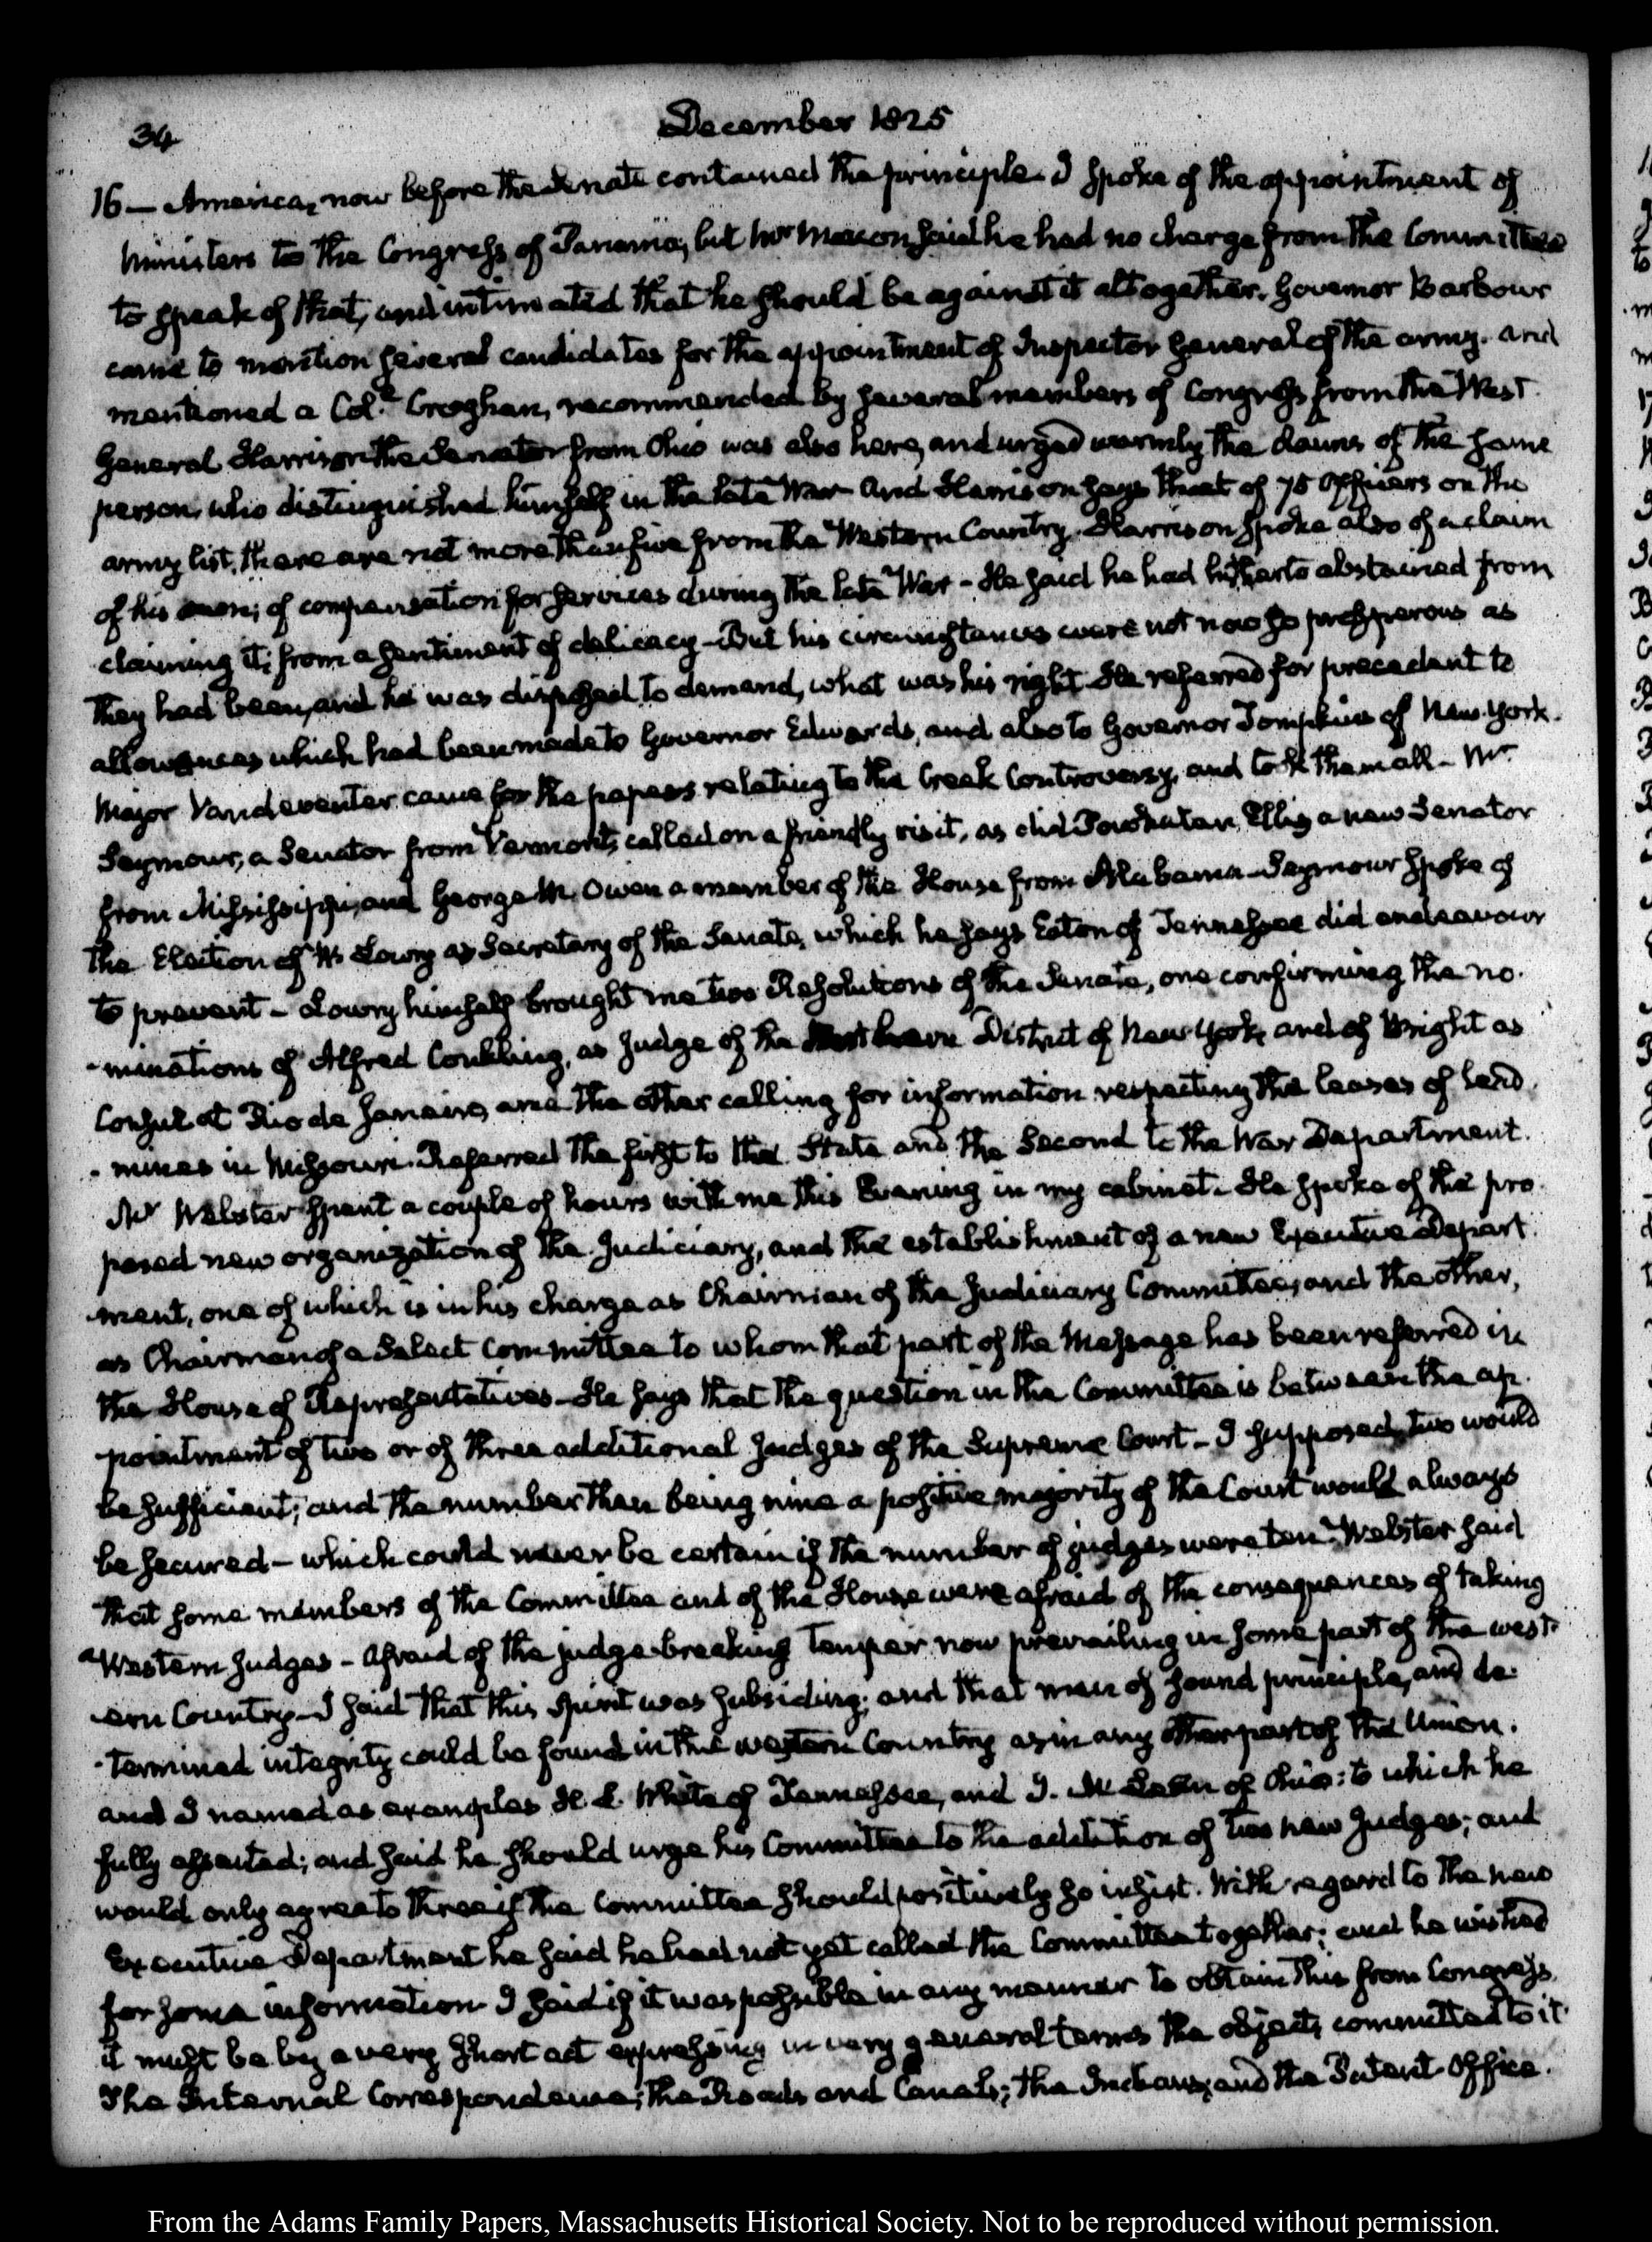 34
December 1825
16 — America, now before the Senate contained the principle. I spoke of the appointment of
Ministers to the Congress of Panama, but Mr Macon said he had no charge from the Committee
to speak of that, and intimated that he should be against it altogether. Governor Barbour
came to mention several candidates for the appointment of Inspector General of the army. and
mentioned a Col.l Croghan, recommended by several members of Congress from the West.
General Harrison the Senator from Ohio was also here, and urged warmly the claims of the same
person, who distinguished himself in the late War and Harrison says that of 75 officers on the
army list, there are not more than five from the Western Country. Harrison spoke also of a claim
of his own; of compensation for services during the late War - He said he had hitherto abstained from
claiming it; from a sentiment of delicacy - But his circumstances were not now so prosperous as
they had been, and he was disposed to demand, what was his right. He referred for precedent to
allowances which had been made to Governor Edwards, and also to Governor Tompkins of New-York.
Major Vandeventer came for the papers relating to the Creek Controversy, and took them all - Mr
Seymour, a Senator from Vermont, called on a friendly visit, as did Powhatan Ellis a new Senator
from Mississippi, and George W. Owen a member of the House from Alabama - Seymour spoke of
the Election of W. Lowry as Secretary of the Senate, which he says Eaton of Tennessee did endeavour
to prevent - Lowry himself brought me two Resolutions of the Senate, one confirming the no-
-minations of Alfred Conkling, as Judge of the Northern District of New York, and of Wright as
Consul at Rio de Janeiro, and the other calling for information respecting the leases of lead
-mines in Missouri. Referred the first to the State and the Second to the War Department.
Mr Webster spent a couple of hours with me this Evening in my cabinet. He spoke of the pro-
posed new organization of the Judiciary, and the establishment of a new Executive Depart-
-ment, one of which is in his charge as Chairman of the Judiciary Committee, and the other,
as Chairman of a Select Committee to whom that part of the Message has been referred in
the House of Representatives - He says that the question in the Committee is between the ap-
-pointment of two or of three additional Judges of the Supreme Court - I supposed, two would
be sufficient; and the number then being nine a positive majority of the Court would always
be secured - which could never be certain if the number of judges were ten. Webster said
that some members of the Committee and of the House were afraid of the consequences of taking
Western Judges - afraid of the judge-breaking temper now prevailing in some part of the west-
-ern Country - I said that this spirit was subsiding; and that men of sound principle, and de-
-termined integrity could be found in the western Country as in any other part of the Union.
and I named as examples H. L. White of Tennessee, and J. McLean of Ohio: to which he
fully assented; and said he should urge his Committee to the addition of two new Judges; and
would only agree to three if the Committee should positively so insist. With regard to the new
Executive Department he said he had not yet called the Committee together; and he wished
for some information. I said if it was possible in any manner to obtain this from Congress,
it must be by a very short act expressing in very general terms the objects committed to it.
The Internal Correspondence; the Roads and Canals; the Indians; and the Patent Office.
From the Adams Family Papers, Massachusetts Historical Society. Not to be reproduced without permission.